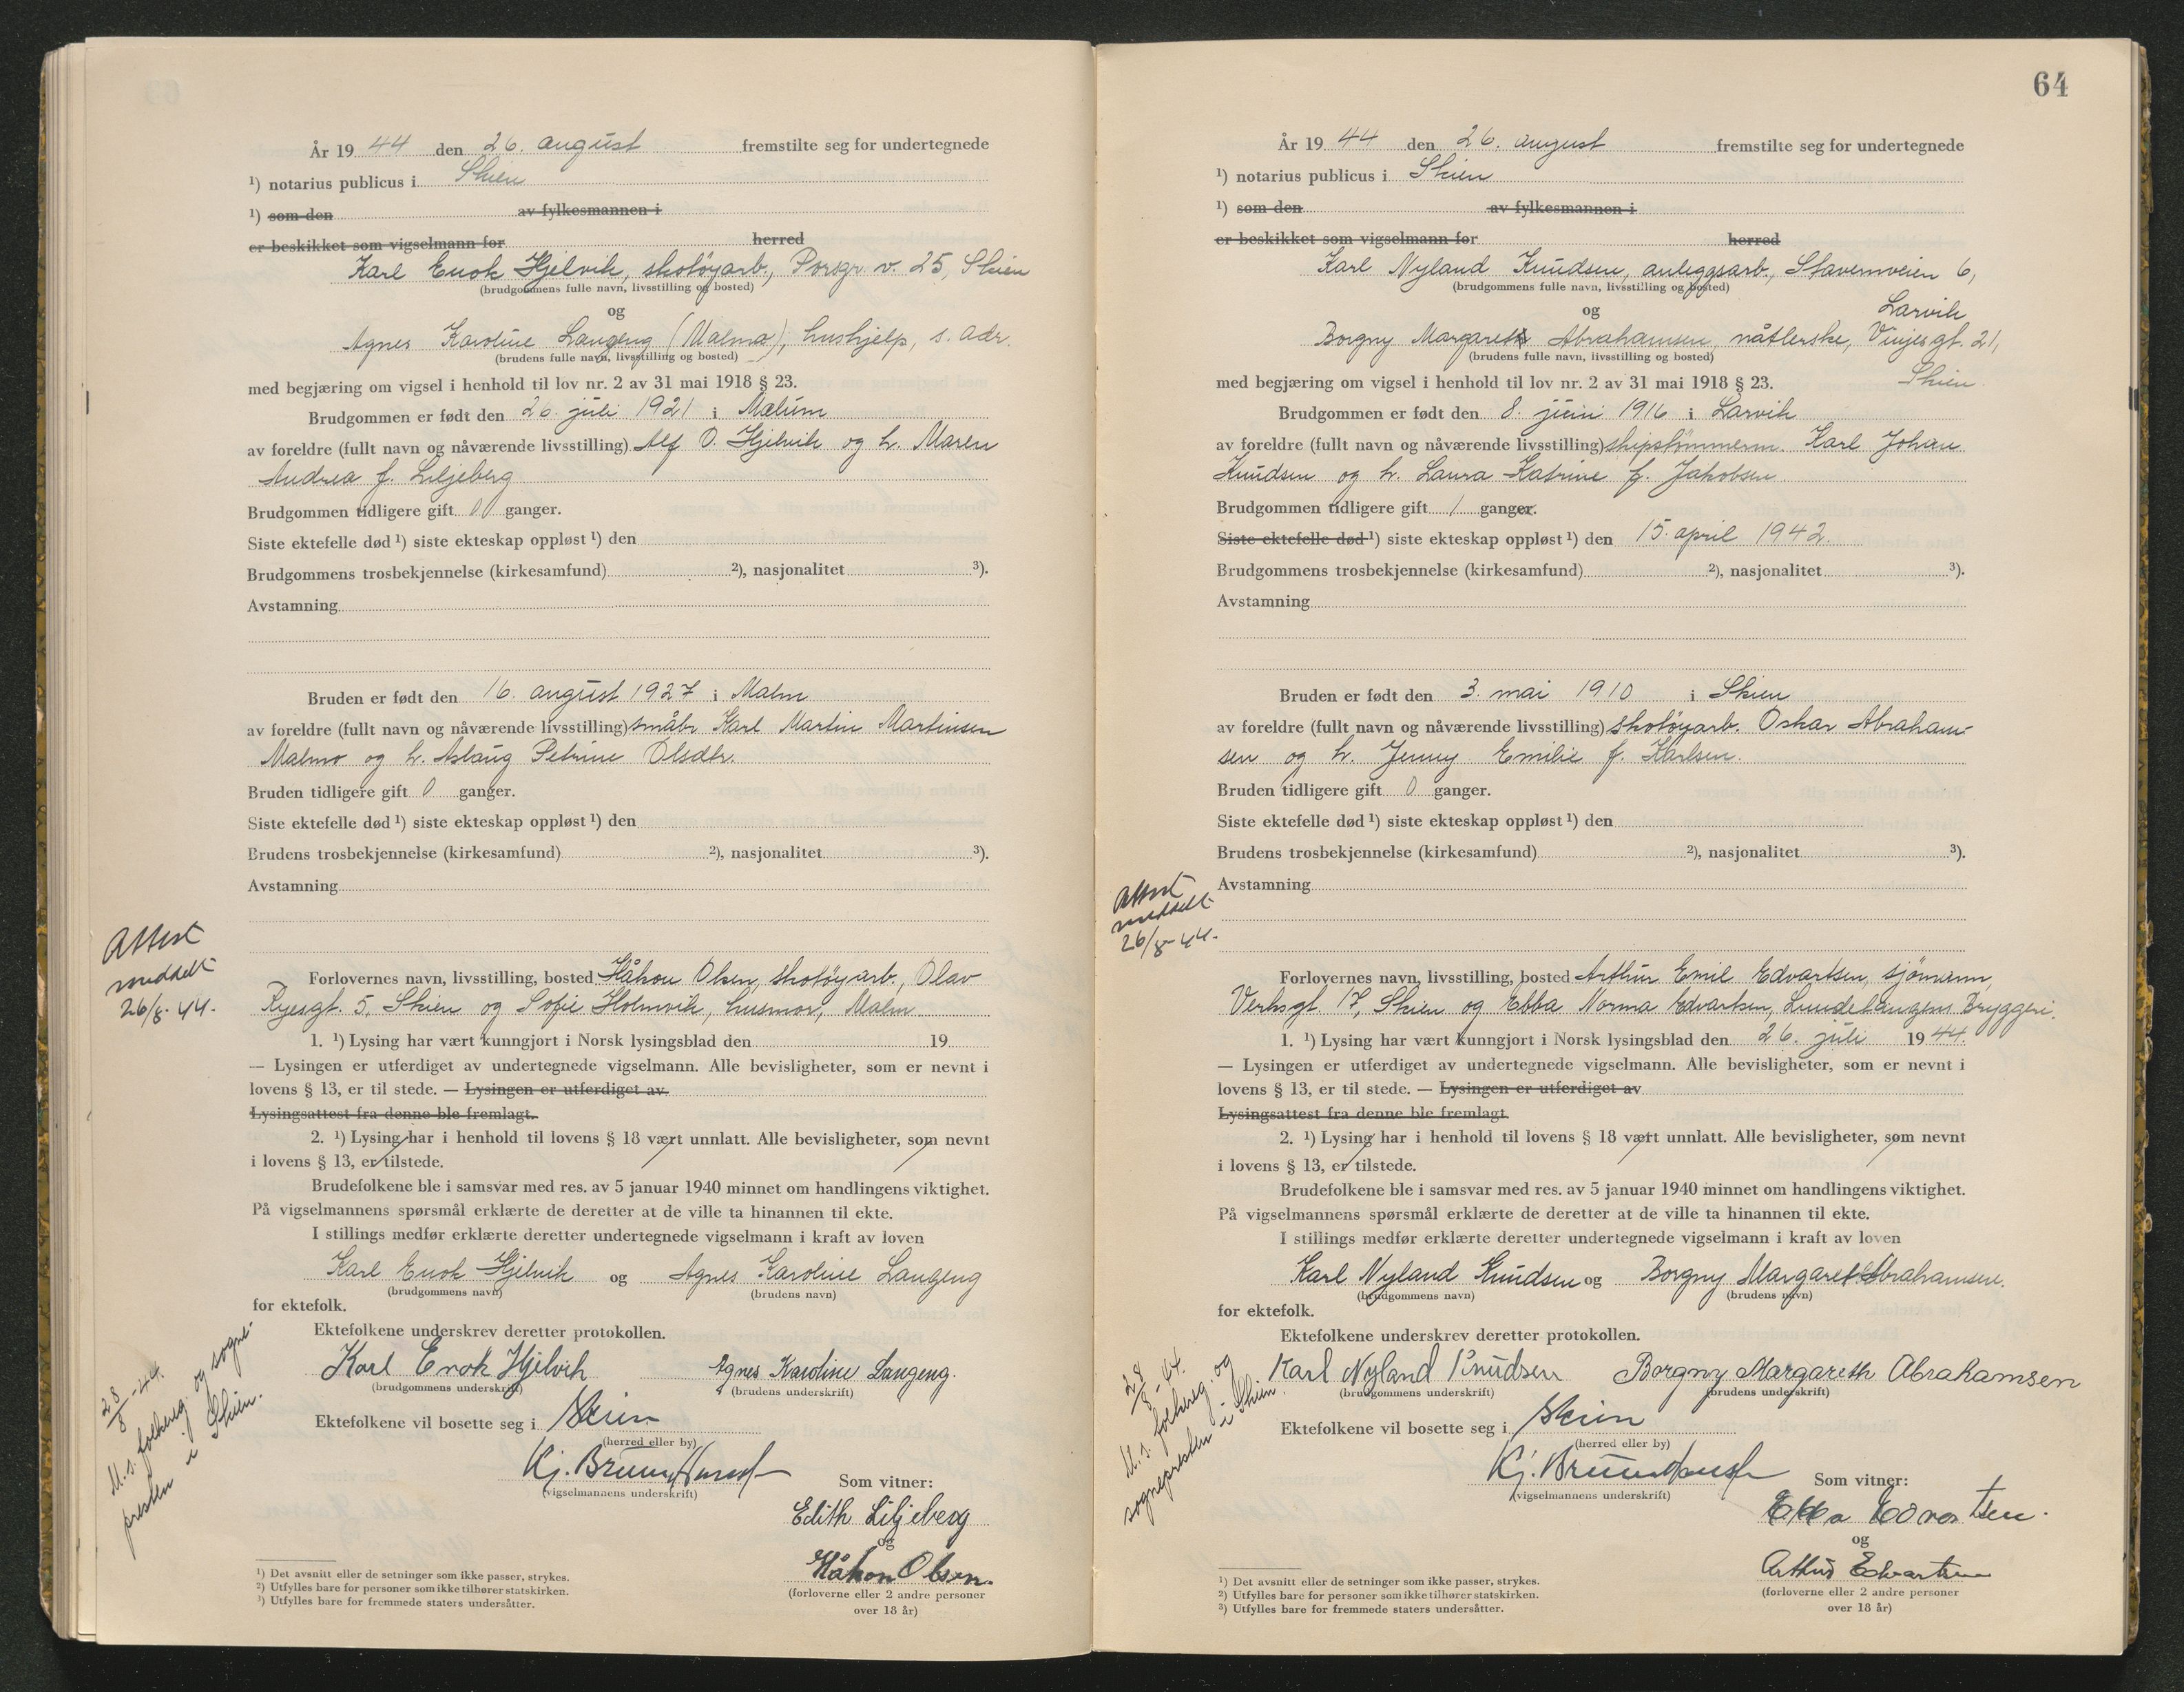 År 19 44 den 26. august fremstilte seg for undertegnede
¹) notarius publicus i Skien
¹) som den av fylkesmannen i
er beskikket som vigselmann for herred
Karl Enok Hjelvik, skotøyarb., Porsgr. v. 25, Skien
(brudgommens fulle navn, livsstilling og bosted)
og
Agnes Karoline Langeng (Malmo), hushjelp, s. adr.
(brudens fulle navn, livsstilling og bosted)
med begjæring om vigsel i henhold til lov nr. 2 av 31 mai 1918 § 23.
Brudgommen er født den 26. juli 1921 i Melum
av foreldre (fullt navn og nåværende livsstilling) Alf O. Hjelvik og h. Maren
Andrea f. Liljeberg
Brudgommen tidligere gift 0 ganger.
Siste ektefelle død ¹) siste ekteskap oppløst ¹) den
Brudgommens trosbekjennelse (kirkesamfund) ²), nasjonalitet ³).
Avstamning
Bruden er født den 16. august 1927 i Malm
av foreldre (fullt navn og nåværende livsstilling) småbr. Karl Martin Martinsen
Malmo og h. Aslaug Petrine Olsdtr.
Bruden tidligere gift 0 ganger.
Siste ektefelle død ¹) siste ekteskap oppløst ¹) den
Brudens trosbekjennelse (kirkesamfund) ²), nasjonalitet ³).
Avstamning
Attest
meddelt
26/8-44.
Forlovernes navn, livsstilling, bosted Håkon Olsen, skotøyarb., Olav
Ryesgt. 5, Skien og Sofie Holmvik, husmor, Malm
1. ¹) Lysing har vært kunngjort i Norsk lysingsblad den 19
— Lysingen er utferdiget av undertegnede vigselmann. Alle bevisligheter, som er nevnt i
lovens § 13, er til stede. — Lysingen er utferdiget av
Lysingsattest fra denne ble fremlagt.
2. ¹) Lysing har i henhold til lovens § 18 vært unnlatt. Alle bevisligheter, som nevnt
i lovens § 13, er tilstede.
Brudefolkene ble i samsvar med res. av 5 januar 1940 minnet om handlingens viktighet.
På vigselmannens spørsmål erklærte de deretter at de ville ta hinannen til ekte.
I stillings medfør erklærte deretter undertegnede vigselmann i kraft av loven
Karl Enok Hjelvik og Agnes Karoline Langeng
(brudgommens navn) (brudens navn)
for ektefolk.
Ektefolkene underskrev deretter protokollen.
Karl Enok Hjelvik Agnes Karoline Langeng.
(brudgommens underskrift) (brudens underskrift)
28/8-44.
M. s. folkereg. og sogne-
presten i Skien.
Ektefolkene vil bosette seg i Skien
(herred eller by)
Kj. Bruun Hansen
(vigselmannens underskrift)
Som vitner:
Edith Liljeberg
og
Håkon Olsen.
(forloverne eller 2 andre personer
over 18 år)
¹) Det avsnitt eller de setninger som ikke passer, strykes.
²) Utfylles bare for personer som ikke tilhører statskirken.
³) Utfylles bare for fremmede staters undersåtter.
64
År 19 44 den 26. august fremstilte seg for undertegnede
¹) notarius publicus i Skien
¹) som den av fylkesmannen i
er beskikket som vigselmann for herred
Karl Nyland Knudsen, anleggsarb., Stavernveien 6,
(brudgommens fulle navn, livsstilling og bosted)
Larvik
og
Borgny Margareth Abrahamsen, nåtlerske, Vinjesgt. 21,
(brudens fulle navn, livsstilling og bosted)
Skien
med begjæring om vigsel i henhold til lov nr. 2 av 31 mai 1918 § 23.
Brudgommen er født den 8. juni 1916 i Larvik
av foreldre (fullt navn og nåværende livsstilling) skipstømmerm. Karl Johan
Knudsen og h. Laura Katrine f. Jakobsen.
Brudgommen tidligere gift 1 ganger.
Siste ektefelle død ¹) siste ekteskap oppløst ¹) den 15. april 1942.
Brudgommens trosbekjennelse (kirkesamfund) ²), nasjonalitet ³).
Avstamning
Bruden er født den 3. mai 1910 i Skien
av foreldre (fullt navn og nåværende livsstilling) skotøyarb. Oskar Abraham-
sen og h. Jenny Emilie f. Karlsen.
Bruden tidligere gift 0 ganger.
Siste ektefelle død ¹) siste ekteskap oppløst ¹) den
Brudens trosbekjennelse (kirkesamfund) ²), nasjonalitet ³).
Avstamning
Attest
meddelt
26/8-44.
Forlovernes navn, livsstilling, bosted Arthur Emil Edvartsen, sjømann,
Verksgt. 17, Skien og Ebba Norma Edvartsen, Lundetangens Bryggeri.
1. ¹) Lysing har vært kunngjort i Norsk lysingsblad den 26. juli 19 44.
— Lysingen er utferdiget av undertegnede vigselmann. Alle bevisligheter, som er nevnt i
lovens § 13, er til stede. — Lysingen er utferdiget av
Lysingsattest fra denne ble fremlagt.
2. ¹) Lysing har i henhold til lovens § 18 vært unnlatt. Alle bevisligheter, som nevnt
i lovens § 13, er tilstede.
Brudefolkene ble i samsvar med res. av 5 januar 1940 minnet om handlingens viktighet.
På vigselmannens spørsmål erklærte de deretter at de ville ta hinannen til ekte.
I stillings medfør erklærte deretter undertegnede vigselmann i kraft av loven
Karl Nyland Knudsen og Borgny Margareth Abrahamsen.
(brudgommens navn) (brudens navn)
for ektefolk.
Ektefolkene underskrev deretter protokollen.
Karl Nyland Knudsen Borgny Margareth Abrahamsen
(brudgommens underskrift) (brudens underskrift)
28/8-44.
M. s. folkereg. og
sognepresten i Skien.
Ektefolkene vil bosette seg i Skien
(herred eller by)
Kj. Bruun Hansen
(vigselmannens underskrift)
Som vitner:
Ebba Edvartsen.
og
Arthur Edvartsen
(forloverne eller 2 andre personer
over 18 år)
¹) Det avsnitt eller de setninger som ikke passer, strykes.
²) Utfylles bare for personer som ikke tilhører statskirken.
³) Utfylles bare for fremmede staters undersåtter.